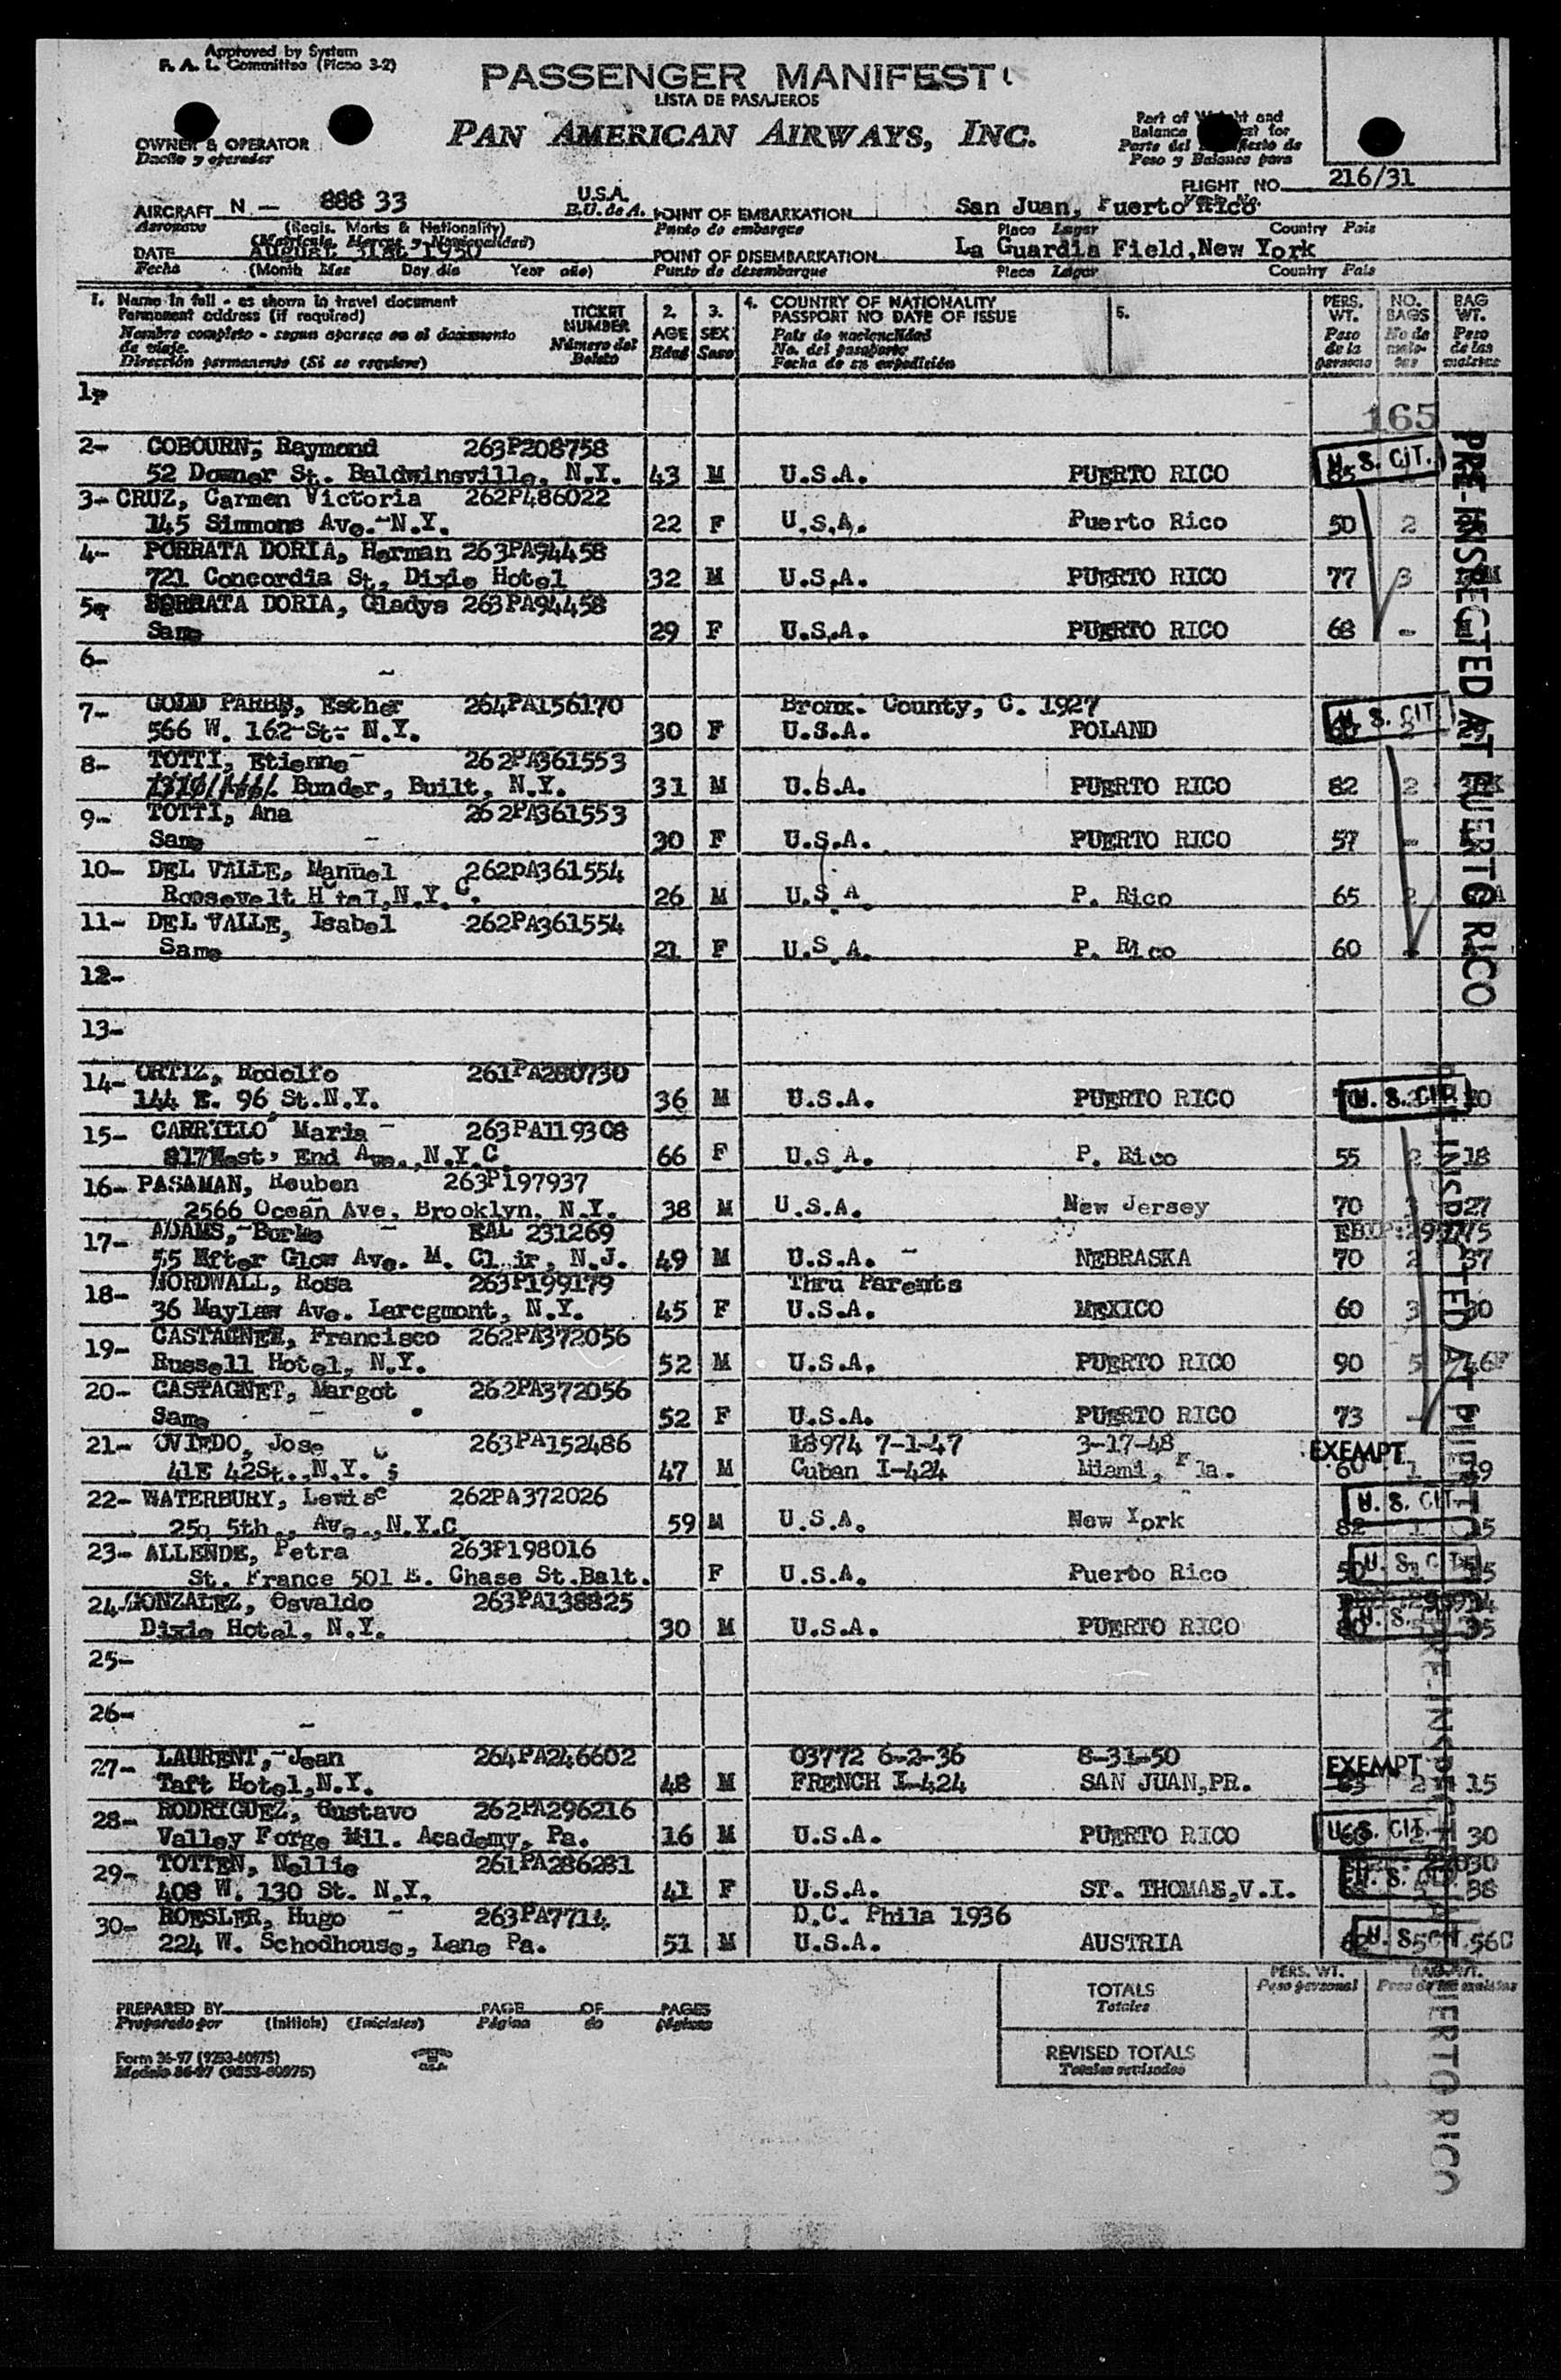 Approved by System
F. A. L. Committee (Picao 3-2)
PASSENGER MANIFEST
LISTA DE PASAJEROS
PAN AMERICAN AIRWAYS, INC.
OWNER & OPERATOR
Dueño y operador
Part of Weight and
Balance for
Parte del Manifiesto de
Peso y Balance para
FLIGHT NO. 216/31
AIRCRAFT N — 888 33 U.S.A.
Aeronave (Regis. Marks & Nationality) E.U. de A.
(Matrícula, Marcas y Nacionalidad)
POINT OF EMBARKATION San Juan, Puerto Rico
Punto de embarque Place Lugar Country Pais
DATE August 31st 1950
Fecha (Month Mes Day dia Year año)
POINT OF DISEMBARKATION La Guardia Field, New York
Punto de desembarque Place Lugar Country Pais
1. Name in full - as shown in travel document
Permanent address (if required)
Nombre completo - segun aparece en el documento
de viaje.
Dirección permanente (Si se requiere)
TICKET NUMBER
Número del Boleto
2. AGE Edad
3. SEX Sexo
4. COUNTRY OF NATIONALITY
PASSPORT NO DATE OF ISSUE
País de nacionalidad
No. del pasaporte
Fecha de su expedición
5.
PERS. WT. Peso de la persona
NO. BAGS No de maletas
BAG WT. Peso de las maletas
1-
165
2- COBOURN, Raymond 263P208758
52 Downer St. Baldwinsville, N.Y. 43 M U.S.A. PUERTO RICO 85 U. S. CIT.
3- CRUZ, Carmen Victoria 262P486022
145 Simmons Ave. N.Y. 22 F U.S.A. Puerto Rico 50 2
4- PORRATA DORIA, Herman 263PA94458
721 Concordia St, Dixie Hotel 32 M U.S.A. PUERTO RICO 77 3
5- PORRATA DORIA, Gladys 263PA94458
Same 29 F U.S.A. PUERTO RICO 68 -
6-
7- GOLD PARES, Esther 264PA156170 Bronx. County, C. 1927
566 W. 162 St- N.Y. 30 F U.S.A. POLAND U. S. CIT 2 29
8- TOTTI, Etienne 262PA361553
Bunder, Built, N.Y. 31 M U.S.A. PUERTO RICO 82 2
9- TOTTI, Ana 262PA361553
Same 30 F U.S.A. PUERTO RICO 57 -
10- DEL VALLE, Manuel 262PA361554
Roosevelt Hotel, N.Y.C. 26 M U.S.A. P. Rico 65 2
11- DEL VALLE, Isabel 262PA361554
Same 21 F U.S.A. P. Rico 60
12-
13-
14- ORTIZ, Rodolfo 261PA280730
144 E. 96 St.N.Y. 36 M U.S.A. PUERTO RICO U. S. CIT.
15- CARRILLO Maria 263PA119308
817 West, End Ave., N.Y.C. 66 F U.S.A. P. Rico 55 2 18
16- PASAMAN, Reuben 263P197937
2566 Ocean Ave, Brooklyn, N.Y. 38 M U.S.A. New Jersey 70 27
17- ADAMS, Burke EAL 231269
55 Efter Glow Ave. M. Clair, N.J. 49 M U.S.A. NEBRASKA 70 2 37
18- NORDWALL, Rosa 263P199179 Thru Parents
36 Maylaw Ave. Larcgmont, N.Y. 45 F U.S.A. MEXICO 60 3 30
19- CASTAGNET, Francisco 262PA372056
Russell Hotel, N.Y. 52 M U.S.A. PUERTO RICO 90 5
20- CASTAGNET, Margot 262PA372056
Same 52 F U.S.A. PUERTO RICO 73 -
21- OVIEDO, Jose 263PA152486 18974 7-1-47 3-17-48 EXEMPT
41E 42St., N.Y. 47 M Cuban I-424 Miami, Fla. 60 1
22- WATERBURY, Lewis 262PA372026
5th., Ave., N.Y.C. 59 M U.S.A. New York U. S. CIT. 82 1 15
23- ALLENDE, Petra 263P198016
St. France 501 E. Chase St.Balt. F U.S.A. Puerto Rico 50 U. S. CIT
24- GONZALEZ, Osvaldo 263PA138825
Dixie Hotel, N.Y. 30 M U.S.A. PUERTO RICO 80 U. S. 35
25-
26-
27- LAURENT, Jean 264PA246602 03772 6-2-36 8-31-50 EXEMPT
Taft Hotel, N.Y. 48 M FRENCH I-424 SAN JUAN, PR. 2 15
28- RODRIGUEZ, Gustavo 262PA296216
Valley Forge Mil. Academy, Pa. 16 M U.S.A. PUERTO RICO U. S. CIT. 30
29- TOTTEN, Nellie 261PA286281
408 W. 130 St. N.Y. 41 F U.S.A. ST. THOMAS, V.I. U. S. CIT. 38
30- ROESLER, Hugo 263PA7714 D.C. Phila 1936
224 W. Schodhouse, Lane Pa. 51 M U.S.A. AUSTRIA U. S. CIT. 56
PRE-INSPECTED AT PUERTO RICO
PRE-INSPECTED AT PUERTO RICO
PRE-INSPECTED AT PUERTO RICO
PREPARED BY PAGE OF PAGES
Preparado por (Initials) (Iniciales) Página de páginas
TOTALS
Totales
PERS. WT.
Peso personal
BAG WT.
Peso de las maletas
REVISED TOTALS
Totales revisados
Form 36-97 (9253-80975)
Modelo 36-97 (9253-80975)